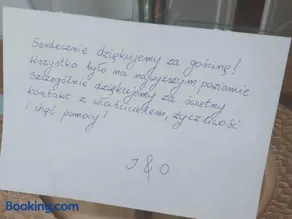 Serdecznie dziękujemy za gościnę!
Wszystko było na najwyższym poziomie
Szczególnie dziękujemy za świetny
kontakt z właścicielem, życzliwość
i chęć pomocy!
J & O
Booking.com